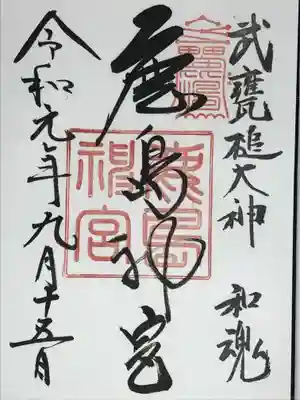 武甕槌大神 和魂
鹿島神宮
鹿島
神宮
令和元年九月十五日